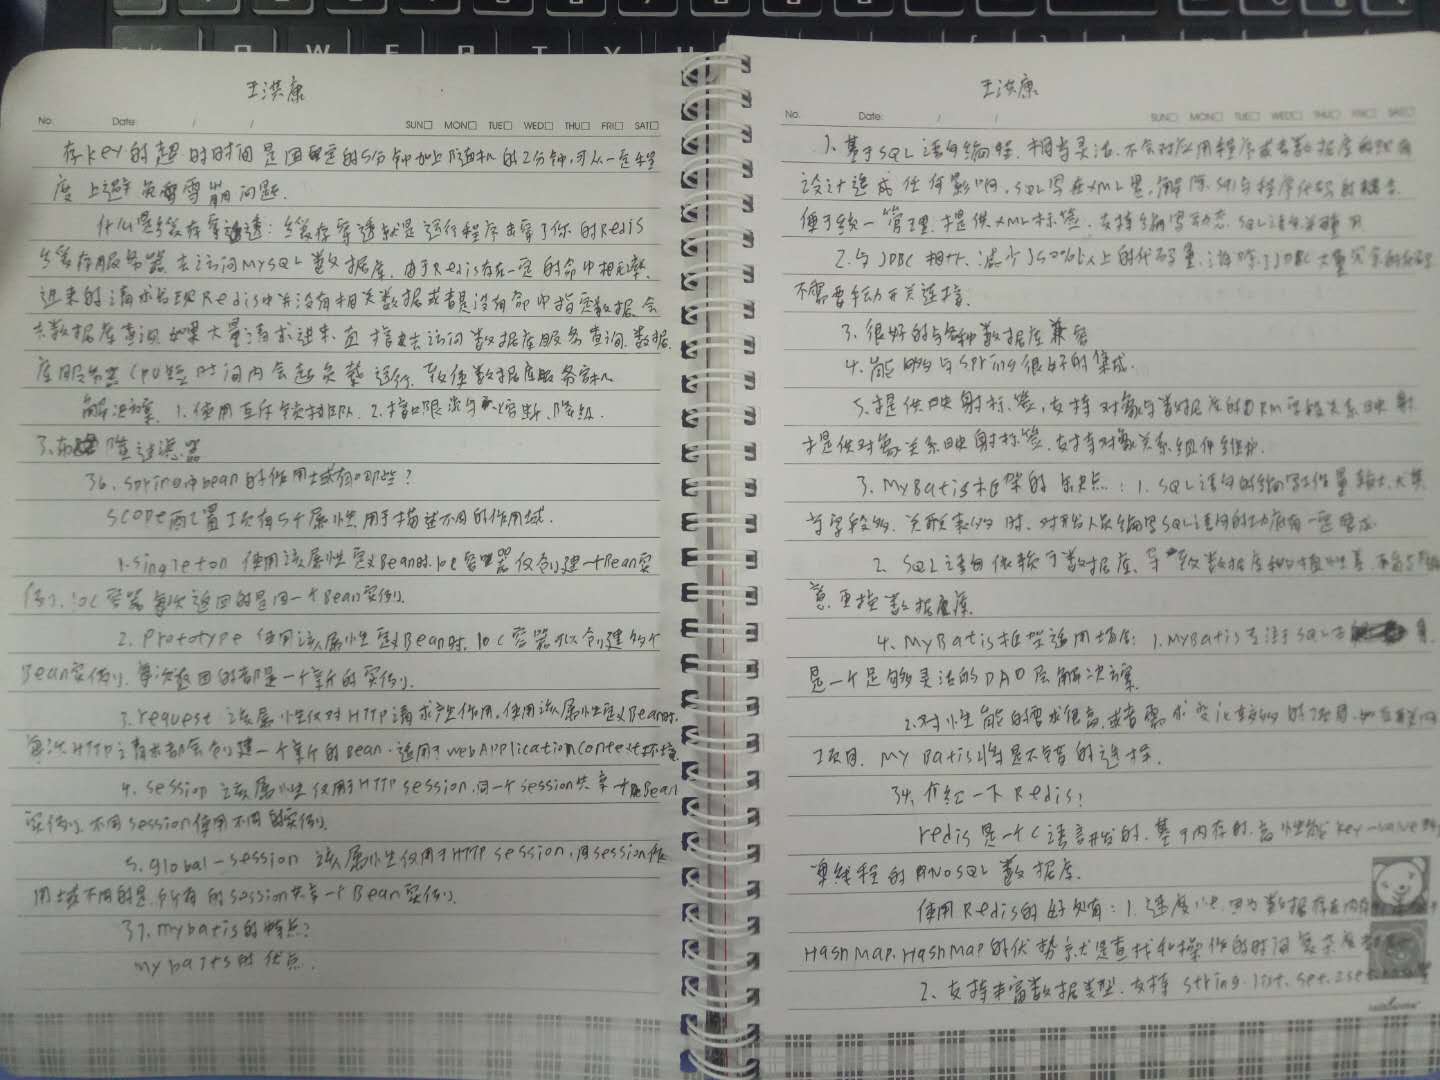 王洪康
No. Date: / / SUN□ MON□ TUE□ WED□ THU□ FRI□ SAT□
存key的超时时间是固定的5分钟加上随机的2分钟,可以一定程
度上避免雪崩问题.
什么是缓存穿透:缓存穿透就是运行程序击穿了你的Redis
缓存服务器去访问MySQL数据库.由于Redis存在一定的命中概率.
进来的请求发现Redis中并没有相关数据或者是没有命中指定数据.会
去数据库查询.如果大量请求进来,直接去访问数据库服务查询.数据
库服务器CPU短时间内会超负荷运行.致使数据库服务宕机
解决方案. 1.使用互斥锁排队. 2.接口限流与熔断、降级.
3.布隆过滤器
36.spring中bean的作用域有哪些?
scope配置项有5个属性,用于描述不同的作用域.
1.singleton 使用该属性定义Bean时,IOC容器仅创建一个Bean实
例,IOC容器每次返回的是同一个Bean实例.
2.Prototype 使用该属性定义Bean时,IOC容器可以创建多个
Bean实例,每次返回的都是一个新的实例.
3.request 该属性仅对HTTP请求产生作用,使用该属性定义Bean时.
每次HTTP请求都会创建一个新的Bean.适用于WebApplicationContext环境.
4.session 该属性仅用于HTTP session,同一个session共享一个Bean
实例.不同session使用不同的实例.
5.global-session 该属性仅用于HTTP session,同session作
用域不同的是,所有的session共享一个Bean实例.
37.mybatis的特点?
mybaits的优点.
王洪康
No. Date: / / SUN□ MON□ TUE□ WED□ THU□ FRI□ SAT□
1.基于SQL语句编程,相当灵活,不会对应用程序或者数据库的现有
设计造成任何影响,SQL写在XML里,解除sql与程序代码的耦合.
便于统一管理.提供XML标签,支持编写动态SQL语句并重用
2.与JDBC相比,减少了50%以上的代码量,消除了JDBC大量冗余的代码
不需要手动开关连接.
3.很好的与各种数据库兼容
4.能够与spring很好的集成.
5.提供映射标签,支持对象与数据库的ORM字段关系映射
提供对象关系映射标签,支持对象关系组件维护.
3.MyBatis框架的缺点:1.SQL语句的编写工作量较大,尤其
当字段多、关联表多时,对开发人员编写SQL语句的功底有一定要求
2.SQL语句依赖于数据库,导致数据库移植性差,不能
意更换数据库.
4.MyBatis框架适用场合:1.MyBatis专注于SQL
是一个足够灵活的DAO层解决方案.
2.对性能的要求很高,或者需求变化较多的项目,如互联网
项目.MyBatis将是不错的选择.
34.介绍一下Redis?
redis是一个C语言开发的,基于内存的,高性能key-value
单线程的NoSQL数据库.
使用Redis的好处有:1.速度快,因为数据存在内存
HashMap.HashMap的优势就是查找和操作的时间复杂度
2.支持丰富数据类型.支持string.list.set.zset.